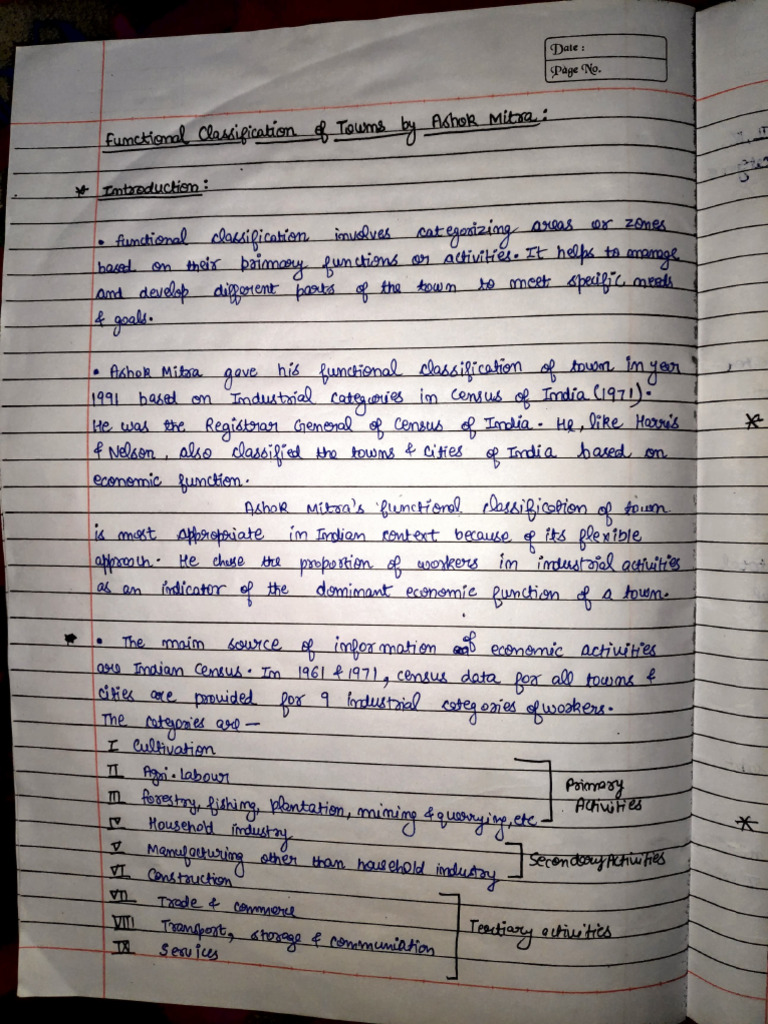 Date :
Page No.
Functional Classification of Towns by Ashok Mitra :
* Introduction :
• Functional classification involves categorizing areas or zones
based on their primary functions or activities. It helps to manage
and develop different parts of the town to meet specific needs
& goals.
• Ashok Mitra gave his functional classification of town in year
1991 based on Industrial categories in Census of India (1971).
He was the Registrar General of Census of India. He, like Harris
& Nelson, also classified the towns & cities of India based on
economic function.
Ashok Mitra's functional classification of town
is most appropriate in Indian context because of its flexible
approach. He chose the proportion of workers in industrial activities
as an indicator of the dominant economic function of a town.
• The main source of information of economic activities
are Indian Census. In 1961 & 1971, census data for all towns &
cities are provided for 9 industrial categories of workers.
The categories are —
I Cultivation
II Agri. labour
III Forestry, fishing, plantation, mining & quarrying, etc
Primary
Activities
IV Household industry
V Manufacturing other than household industry
Secondary Activities
VI Construction
VII Trade & commerce
VIII Transport, storage & communiation
Tertiary activities
IX Services
*
*